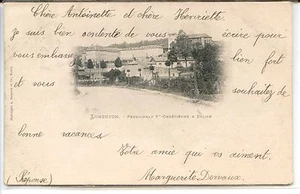 Chère Antoinette et chère Henriette
je suis bien contente de vous écrire pour
vous embrasser bien fort
et vous souhaiter de
Pensionnat Ste Chrétienne & Église
bonne vacances
Votre amie qui vous aiment.
(Réponse) Marguerite Dorvaux.